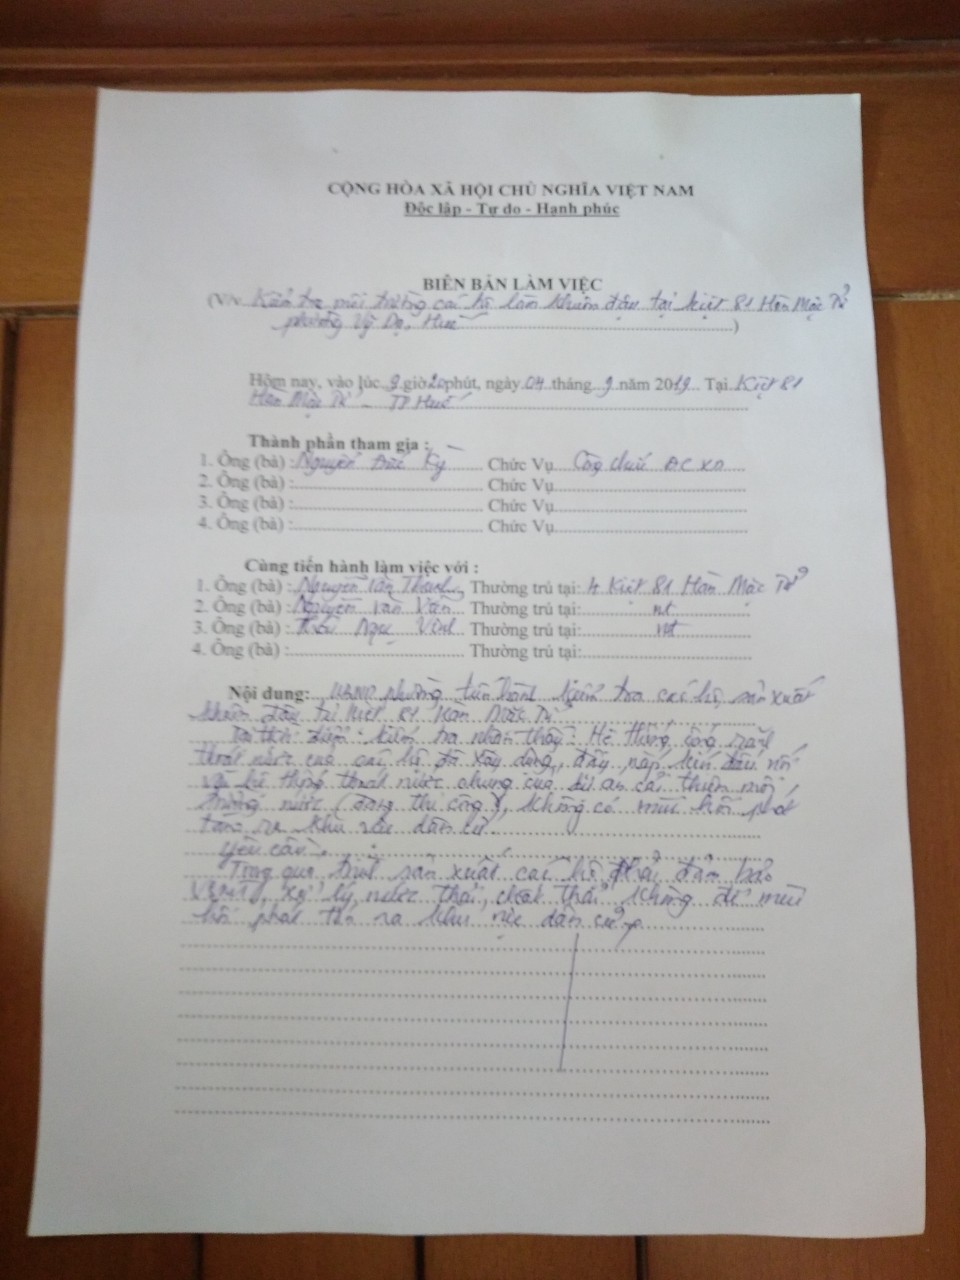 CỘNG HÒA XÃ HỘI CHỦ NGHĨA VIỆT NAM
Độc lập - Tự do - Hạnh phúc
BIÊN BẢN LÀM VIỆC
(V/v Kiểm tra môi trường các hộ làm khuôn đậu tại kiệt 81 Hàn Mặc Tử
phường Vỹ Dạ, Huế)
Hôm nay, vào lúc 9 giờ 20 phút, ngày 04 tháng 9 năm 2019 Tại Kiệt 81
Hàn Mặc Tử - TP Huế
Thành phần tham gia :
1. Ông (bà) : Nguyễn Đức Kỳ Chức Vụ Công chức ĐC XD
2. Ông (bà) : Chức Vụ
3. Ông (bà) : Chức Vụ
4. Ông (bà) : Chức Vụ
Cùng tiến hành làm việc với :
1. Ông (bà) : Nguyễn Văn Thanh Thường trú tại: 4 Kiệt 81 Hàn Mặc Tử
2. Ông (bà) : Nguyễn Văn Vân Thường trú tại: nt
3. Ông (bà) : Ngọc Thường trú tại: nt
4. Ông (bà) : Thường trú tại:
Nội dung: UBND phường tiến hành kiểm tra các hộ sản xuất
khuôn đậu tại kiệt 81 Hàn Mặc Tử
Tại thời điểm kiểm tra nhận thấy: Hệ thống cống rãnh
thoát nước của các hộ đã xây dựng, đậy nắp kín đấu nối
với hệ thống thoát nước chung của dự án cải thiện môi
trường nước (đang thi công), không có mùi hôi phát
tán ra khu vực dân cư.
Yêu cầu:
Trong quá trình sản xuất các hộ phải đảm bảo
VSMT, xử lý nước thải, chất thải không để mùi
hôi phát tán ra khu vực dân cư